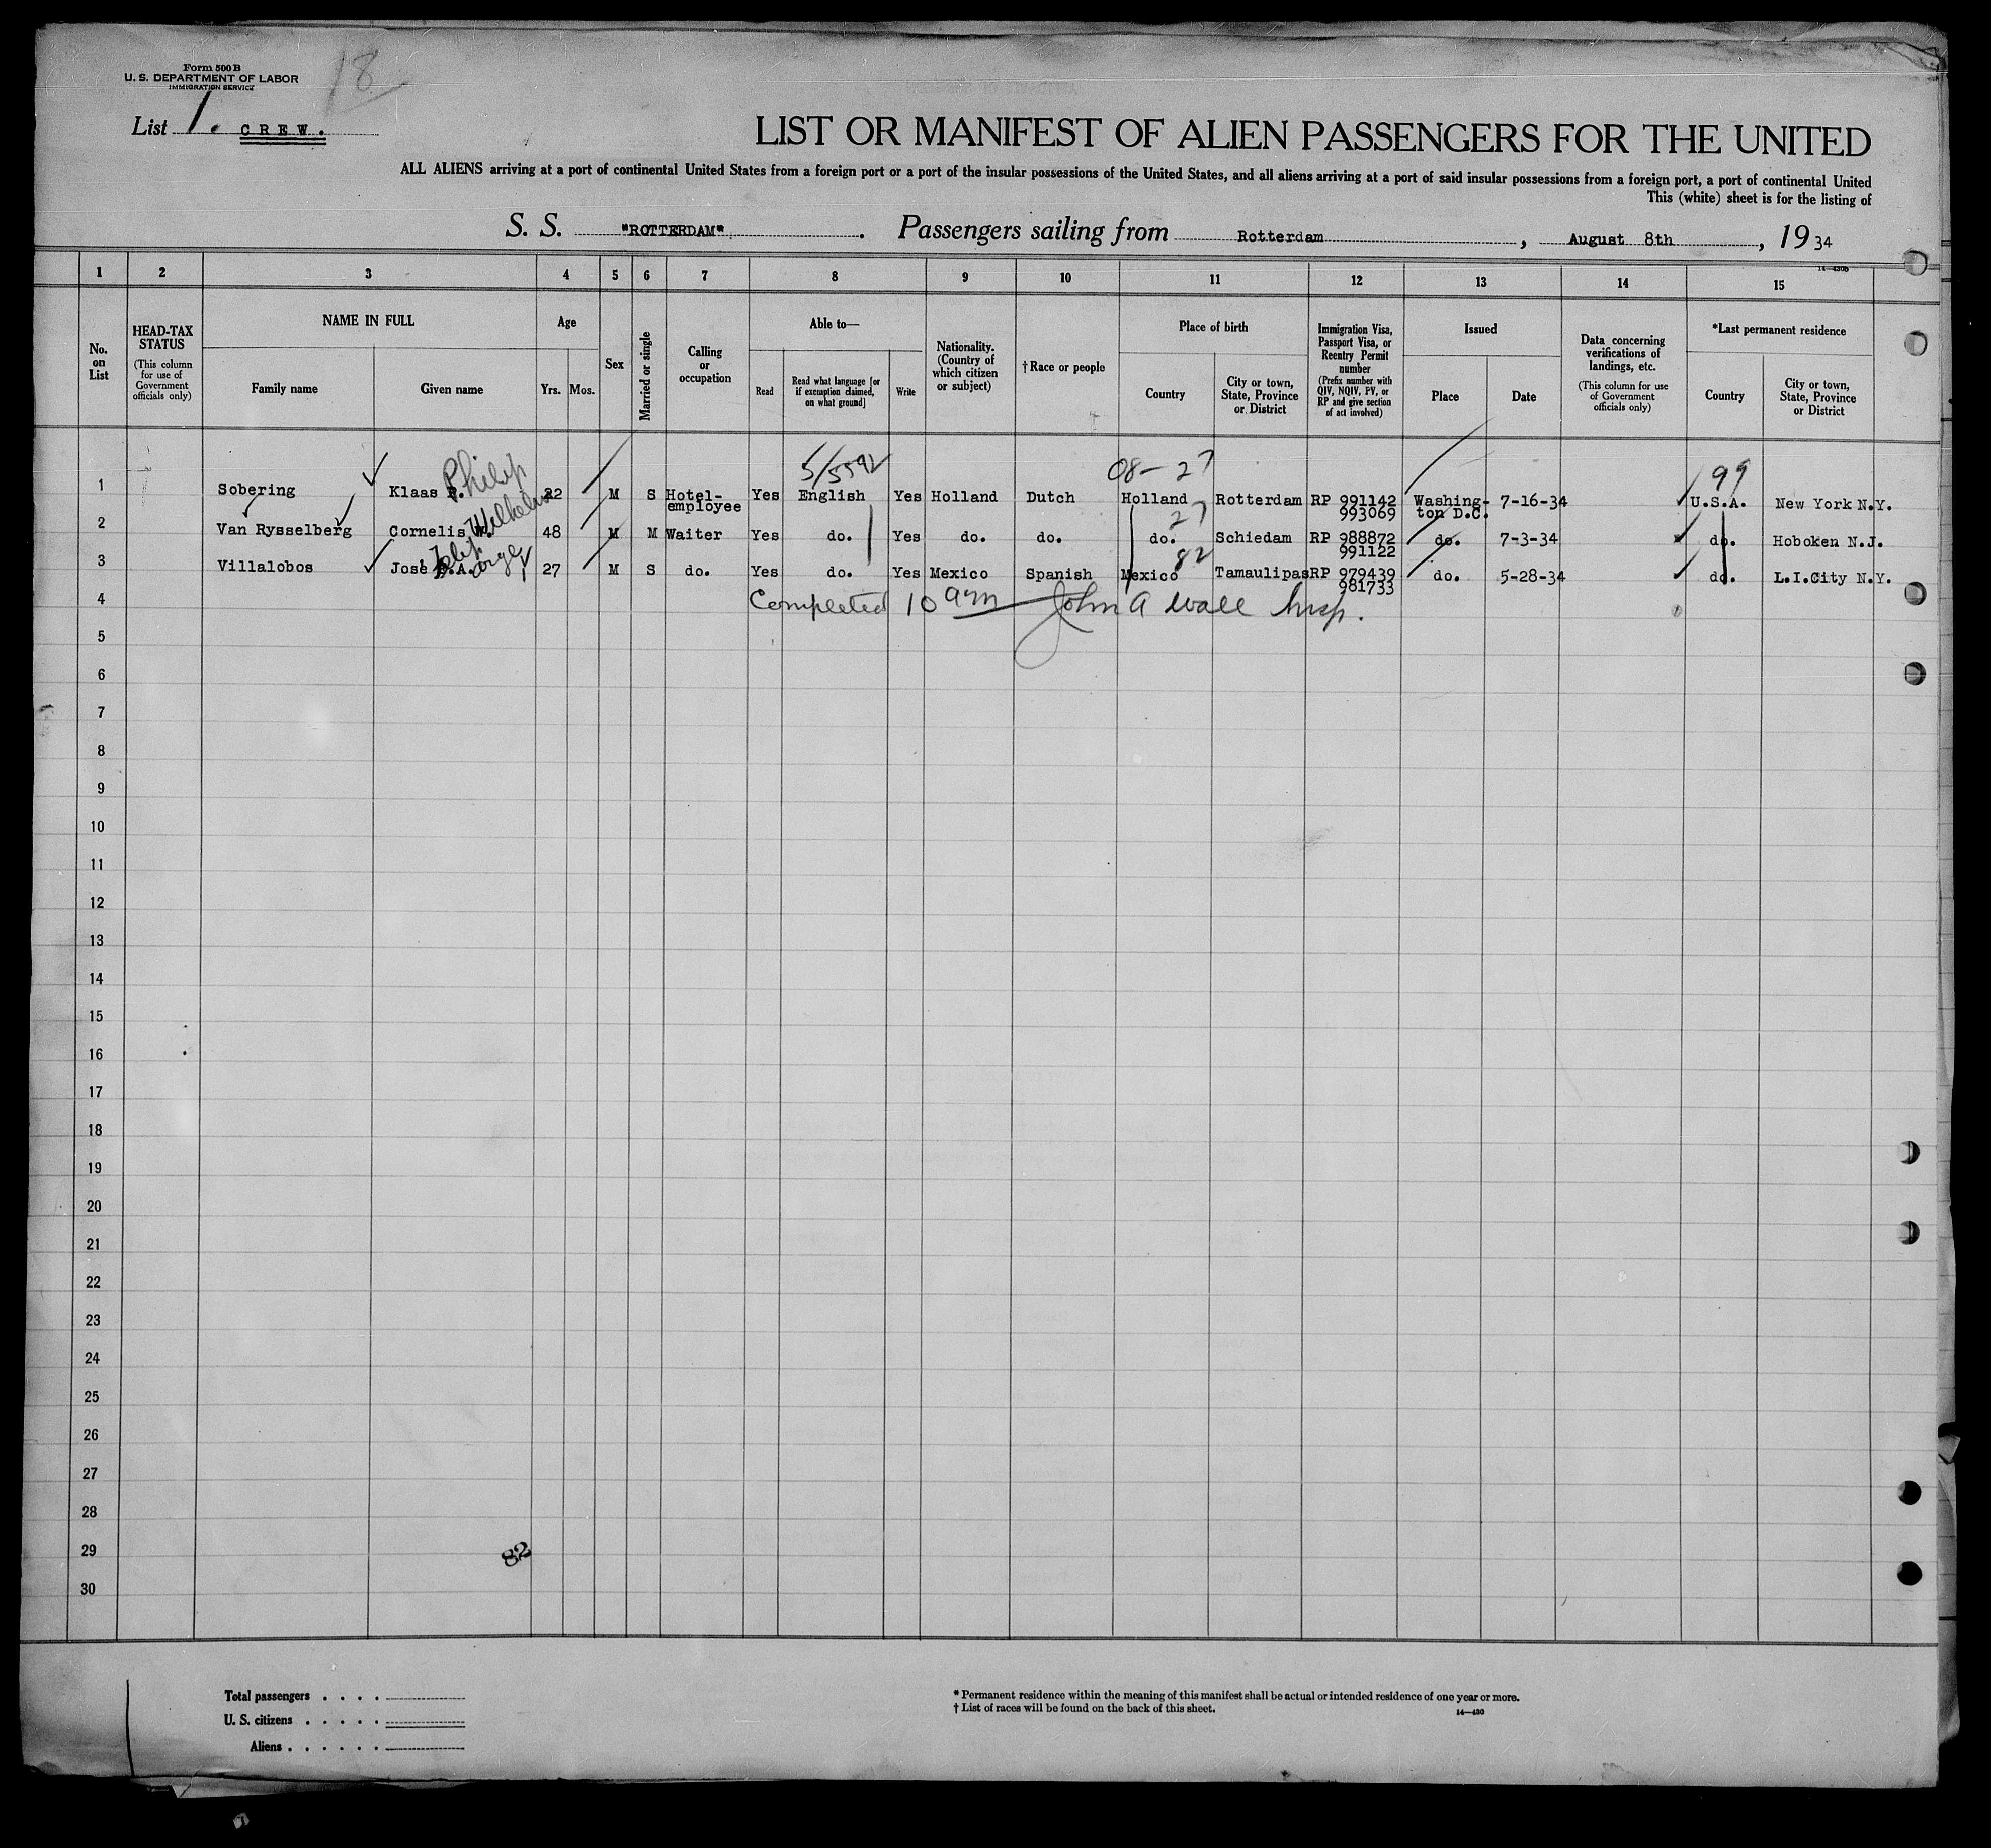 Form 500 B
U. S. DEPARTMENT OF LABOR
IMMIGRATION SERVICE
18
List 1. CREW.
LIST OR MANIFEST OF ALIEN PASSENGERS FOR THE UNITED
ALL ALIENS arriving at a port of continental United States from a foreign port or a port of the insular possessions of the United States, and all aliens arriving at a port of said insular possessions from a foreign port, a port of continental United
This (white) sheet is for the listing of
S. S. "ROTTERDAM". Passengers sailing from Rotterdam, August 8th, 19 34
14—430B
1 2 3 4 5 6 7 8 9 10 11 12 13 14 15
No. on List
HEAD-TAX STATUS
(This column for use of Government officials only)
NAME IN FULL
Family name
Given name
Age
Yrs. Mos.
Sex
Married or single
Calling or occupation
Able to—
Read
Read what language [or if exemption claimed, on what ground]
Write
Nationality. (Country of which citizen or subject)
†Race or people
Place of birth
Country
City or town, State, Province or District
Immigration Visa, Passport Visa, or Reentry Permit number
(Prefix number with QIV, NQIV, PV, or RP and give section of act involved)
Issued
Place
Date
Data concerning verifications of landings, etc.
(This column for use of Government officials only)
*Last permanent residence
Country
City or town, State, Province or District
5/5592 08-27 99
1 Sobering Klaas P. Philip 22 M S Hotel-employee Yes English Yes Holland Dutch Holland Rotterdam RP 991142 993069 Washington D.C. 7-16-34 U.S.A. New York N.Y.
27
2 Van Rysselberg Cornelis W. Wilhelm 48 M M Waiter Yes do. Yes do. do. do. Schiedam RP 988872 991122 do. 7-3-34 do. Hoboken N.J.
82
3 Villalobos José A. 27 M S do. Yes do. Yes Mexico Spanish Mexico Tamaulipas RP 979439 981733 do. 5-28-34 do. L.I.City N.Y.
4 Completed 10 am John A Wall Insp.
5
6
7
8
9
10
11
12
13
14
15
16
17
18
19
20
21
22
23
24
25
26
27
28
29
82
30
Total passengers . . . .
U. S. citizens . . . . .
Aliens . . . . . .
* Permanent residence within the meaning of this manifest shall be actual or intended residence of one year or more.
† List of races will be found on the back of this sheet.
14—430